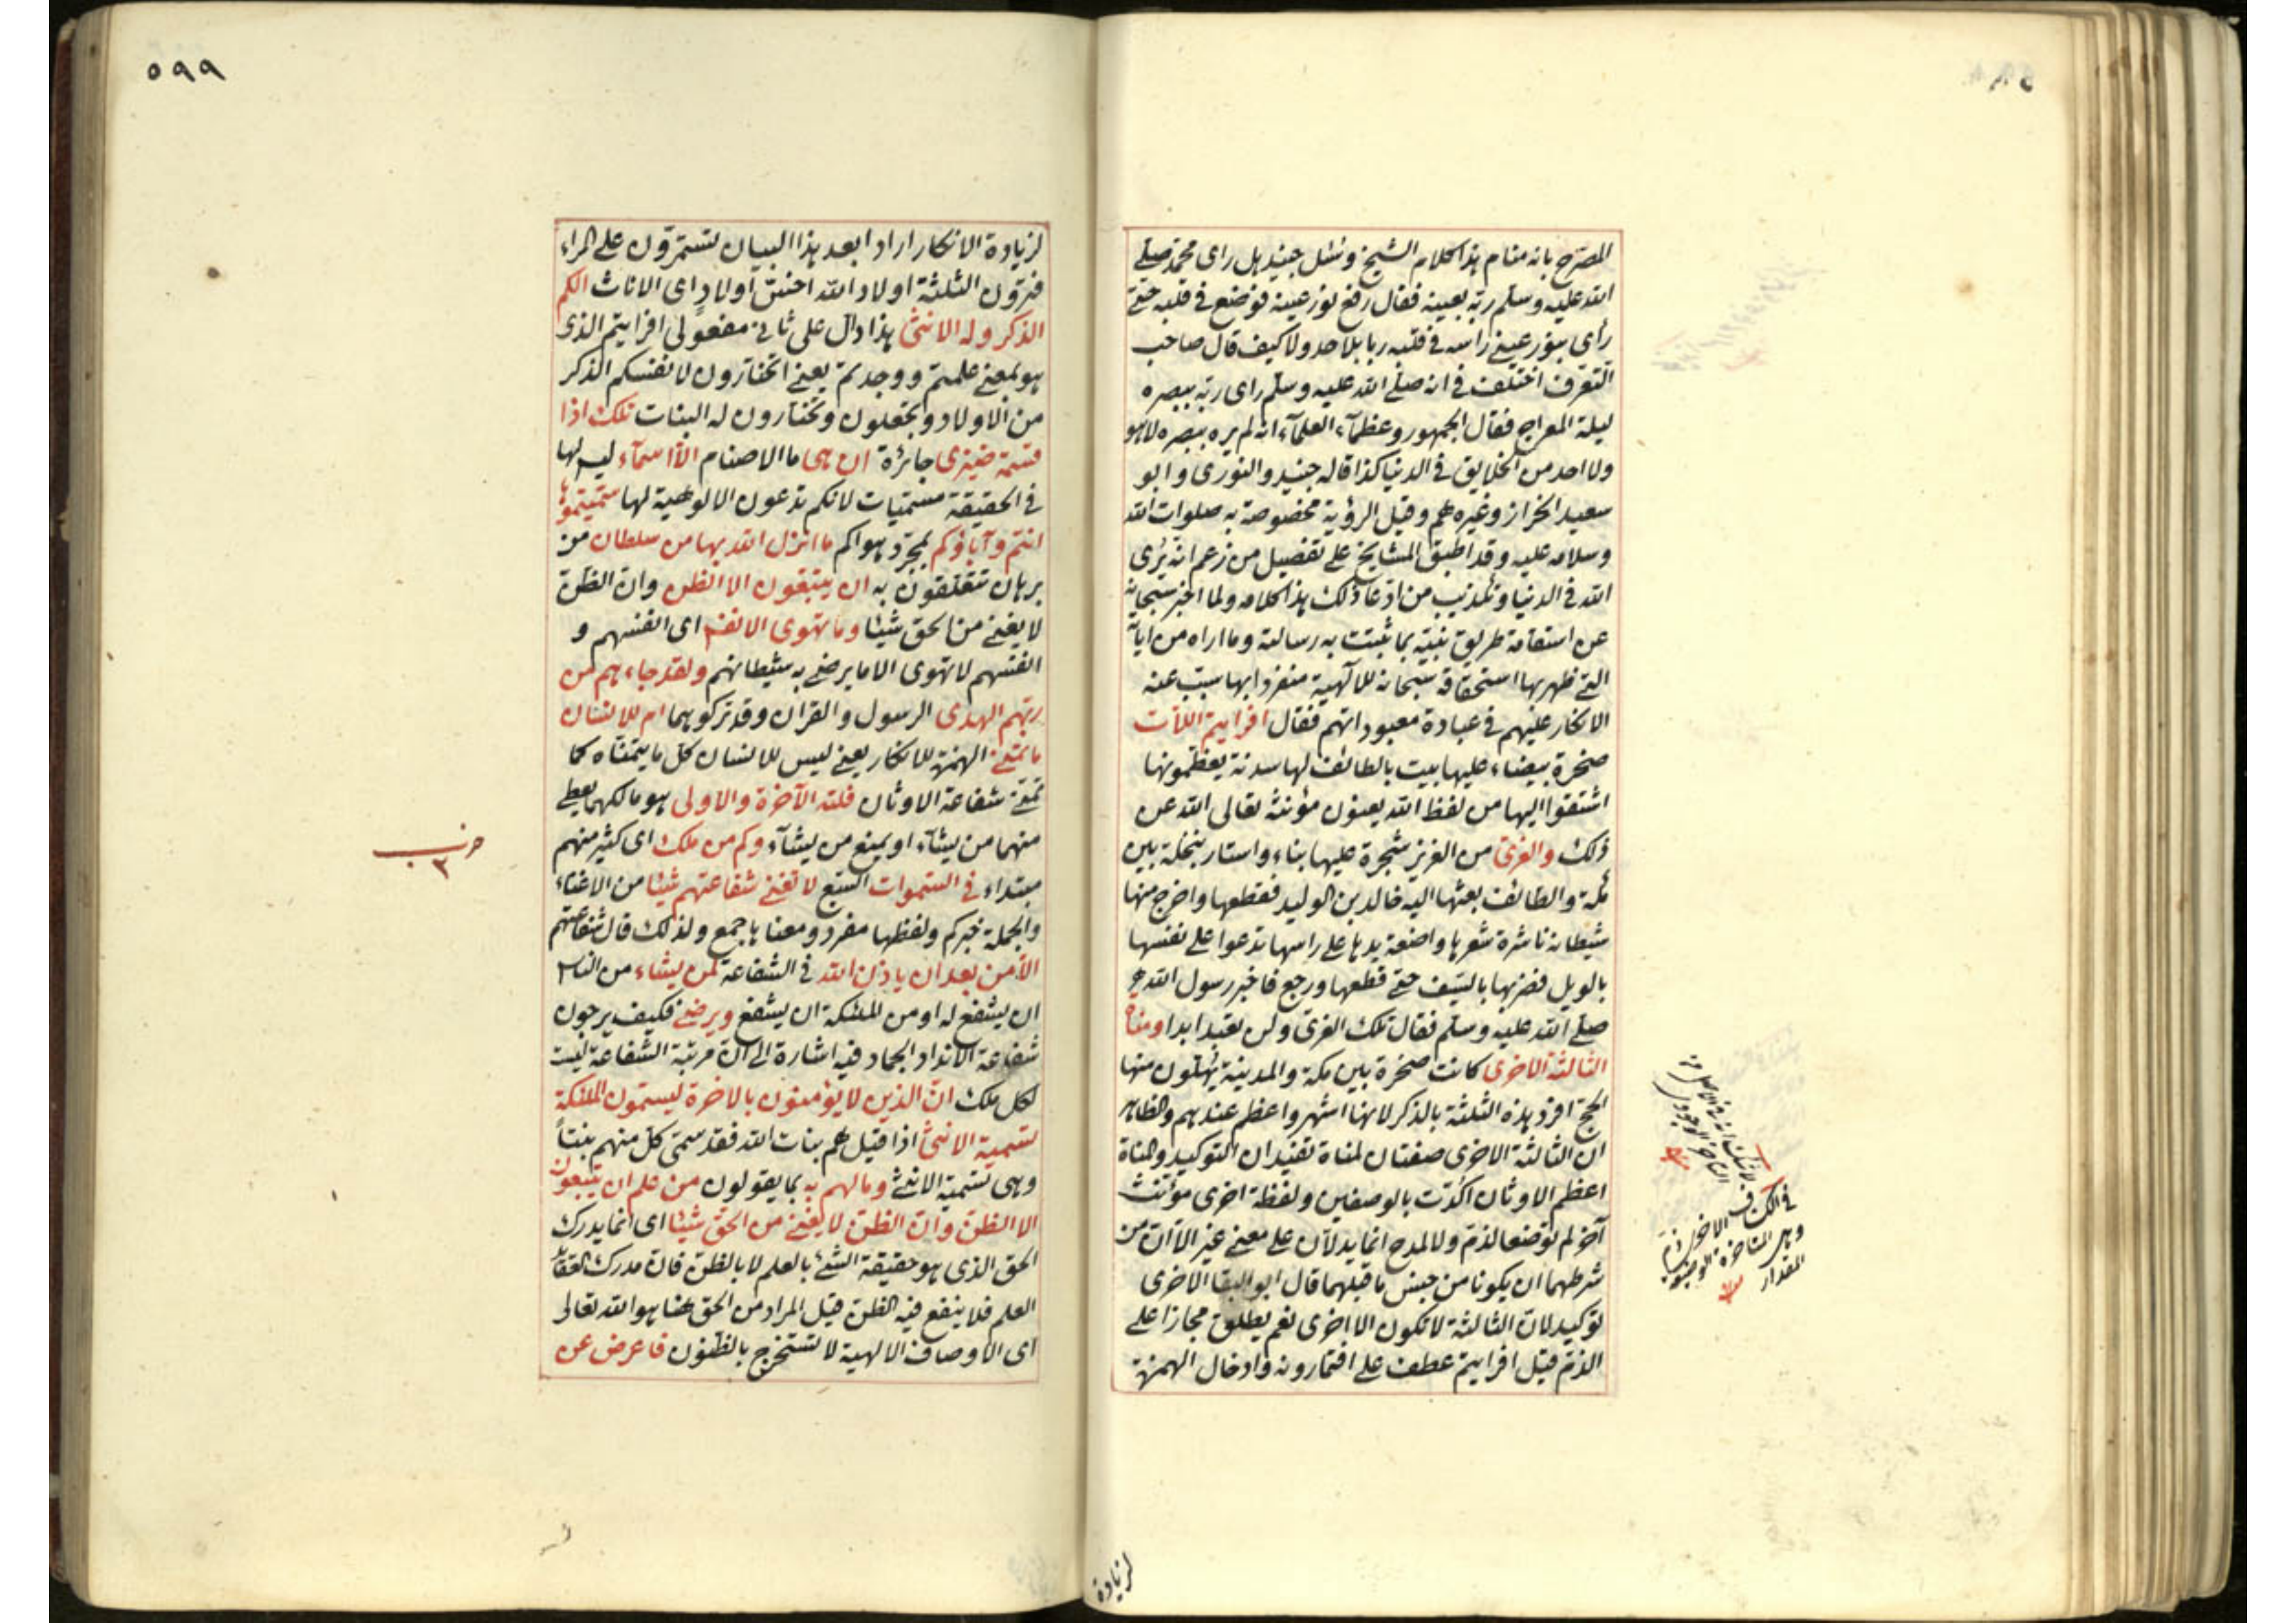 المصرح بانه منام هذا كلام الشيخ وسئل جنيد هل راى محمد صلى
الله عليه وسلم ربه بعينه فقال رفع نور عينه فوضع فى قلبه حتى
رأى بنور عينى راسه فى قلبه ربا بلا حد ولا كيف قال صاحب
التعرف اختلف فى انه صلى الله عليه وسلم راى ربه ببصره
ليلة المعراج فقال الجمهور وعظمآء العلمآء انه لم يره ببصره لا هو
ولا احد من الخلايق فى الدنيا كذا قاله جنيد والنورى وابو
سعيد الخراز وغيرهم وقيل الرؤية مخصوصة به صلوات الله
وسلامه عليه وقد اطبق المشايخ على تضليل من زعم انه يرى
الله فى الدنيا وتكذيب من ادعا ذلك هذا كلامه ولما اخبر سبحانه
عن استقامة طريق نبيه بما ثبتت به رسالته وما اراه من اياته
التى ظهر بها استحقاقه سبحانه للالهية منفردا بها سبب عنه
الانكار عليهم فى عبادة معبوداتهم فقال افرايتم اللات
صخرة بيضاء عليها بيت بالطائف لها سدنة يعظمونها
اشتقوا اليها من لفظ الله يعنون مؤنثه تعالى الله عن
ذلك والعزى من العزيز شجرة عليها بناء واستار بنخلة بين
مكة والطائف بعث اليها خالد بن الوليد فقطعها واخرج منها
شيطانة ناشرة شعرها واضعة يدها على راسها تدعوا على نفسها
بالويل فضربها بالسيف حتى قطعها ورجع فاخبر رسول الله
صلى الله عليه وسلم فقال تلك العزى ولن تعبد ابدا ومناة
الثالثة الاخرى كانت صخرة بين مكة والمدينة يهلون منها
الحج افرد هذه الثلثة بالذكر لانها اشهر واعظم عندهم والظاهر
ان الثالثة الاخرى صفتان لمناة تفيدان التوكيد والمناة
اعظم الاوثان اكدت بالوصفين ولفظة اخرى مؤنث
آخر لم توضع الذم ولا لمدح انما يدلان على معنى غير الا ان من
شرطهما ان يكونا من جنس ما قبلهما قال ابو البقا الاخرى
توكيد لان الثالثة لا تكون الا اخرى نعم يطلق مجازا على
الذم قيل افرايتم عطف على افتمارونه وادخال الهمزة
فى الكشاف الاخرى ذم
وهى المتاخرة الوضيعة
المقدار
لزيادة
٥٩٩
لزيادة الانكار اراد ابعد هذا البيان تستمرون على المراء
فترون الثلثة اولاد الله اخس اولاد اى الاناث الكم
الذكر وله الانثى هذا دال على ثانى مفعولى افرايتم الذى
هو بمعنى علمتم ووجدتم يعنى اتختارون لانفسكم الذكر
من الاولاد وتجعلون وتختارون له البنات تلك اذا
قسمة ضيزى جائرة ان هى ما الاصنام الا اسمآء ليس لها
فى الحقيقة مسميات لانكم تدعون الالوهية لها سميتموها
انتم وآباؤكم بمجرد هواكم ما انزل الله بها من سلطان من
برهان تتعلقون به ان يتبعون الا الظن وان الظن
لا يغنى من الحق شيئا وما تهوى الانفس اى انفسهم و
انفسهم لا تهوى الا ما يرضى به شيطانهم ولقد جاءهم من
ربهم الهدى الرسول والقران وقد تركوهما ام للانسان
ما تمنى الهمزة للانكار يعنى ليس للانسان كل ما يتمناه كما
تمنى شفاعة الاوثان فلله الآخرة والاولى هو مالكهما يعطى
منهما من يشآء او يمنع من يشآء وكم من ملك اى كثير منهم
حزب ٣
مبتداء فى السموات السبع لا تغنى شفاعتهم شيئا من الاغناء
والجملة خبر كم ولفظها مفرد ومعناها جمع ولذلك قال شفاعتهم
الا من بعد ان ياذن الله فى الشفاعة لمن يشاء من الناس
ان يشفع له او من الملئكة ان يشفع ويرضى فكيف يرجون
شفاعة الانداد الجماد فيه اشارة الى ان مرتبة الشفاعة ليست
لكل ملك ان الذين لا يؤمنون بالاخرة ليسمون الملئكة
تسمية الانثى اذا قيل هم بنات الله فقد سمى كل منهم بنتا
وهى تسمية الانثى وما لهم به بما يقولون من علم ان يتبعون
الا الظن وان الظن لا يغنى من الحق شيئا اى انما يدرك
الحق الذى هو حقيقة الشئ بالعلم لا بالظن فان مدرك العقايد
العلم فلا ينفع فيه الظن قيل المراد من الحق هنا هو الله تعالى
اى الاوصاف الالهية لا تستخرج بالظنون فاعرض عن